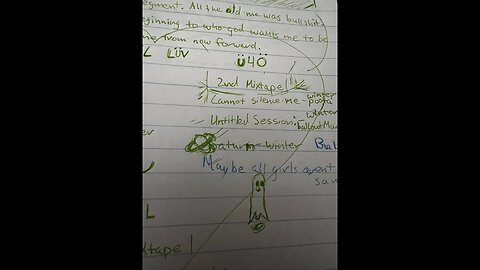 egment. All the old me was bullshit
eginning to who god wants me to be
me from now forward.
L LÜV Ü4Ö
2nd Mixtape
Cannot silence me - winter
Untitled Session: winter
Saturn - winter Bul
Maybe all girls arent
sam
L
ixtape 1